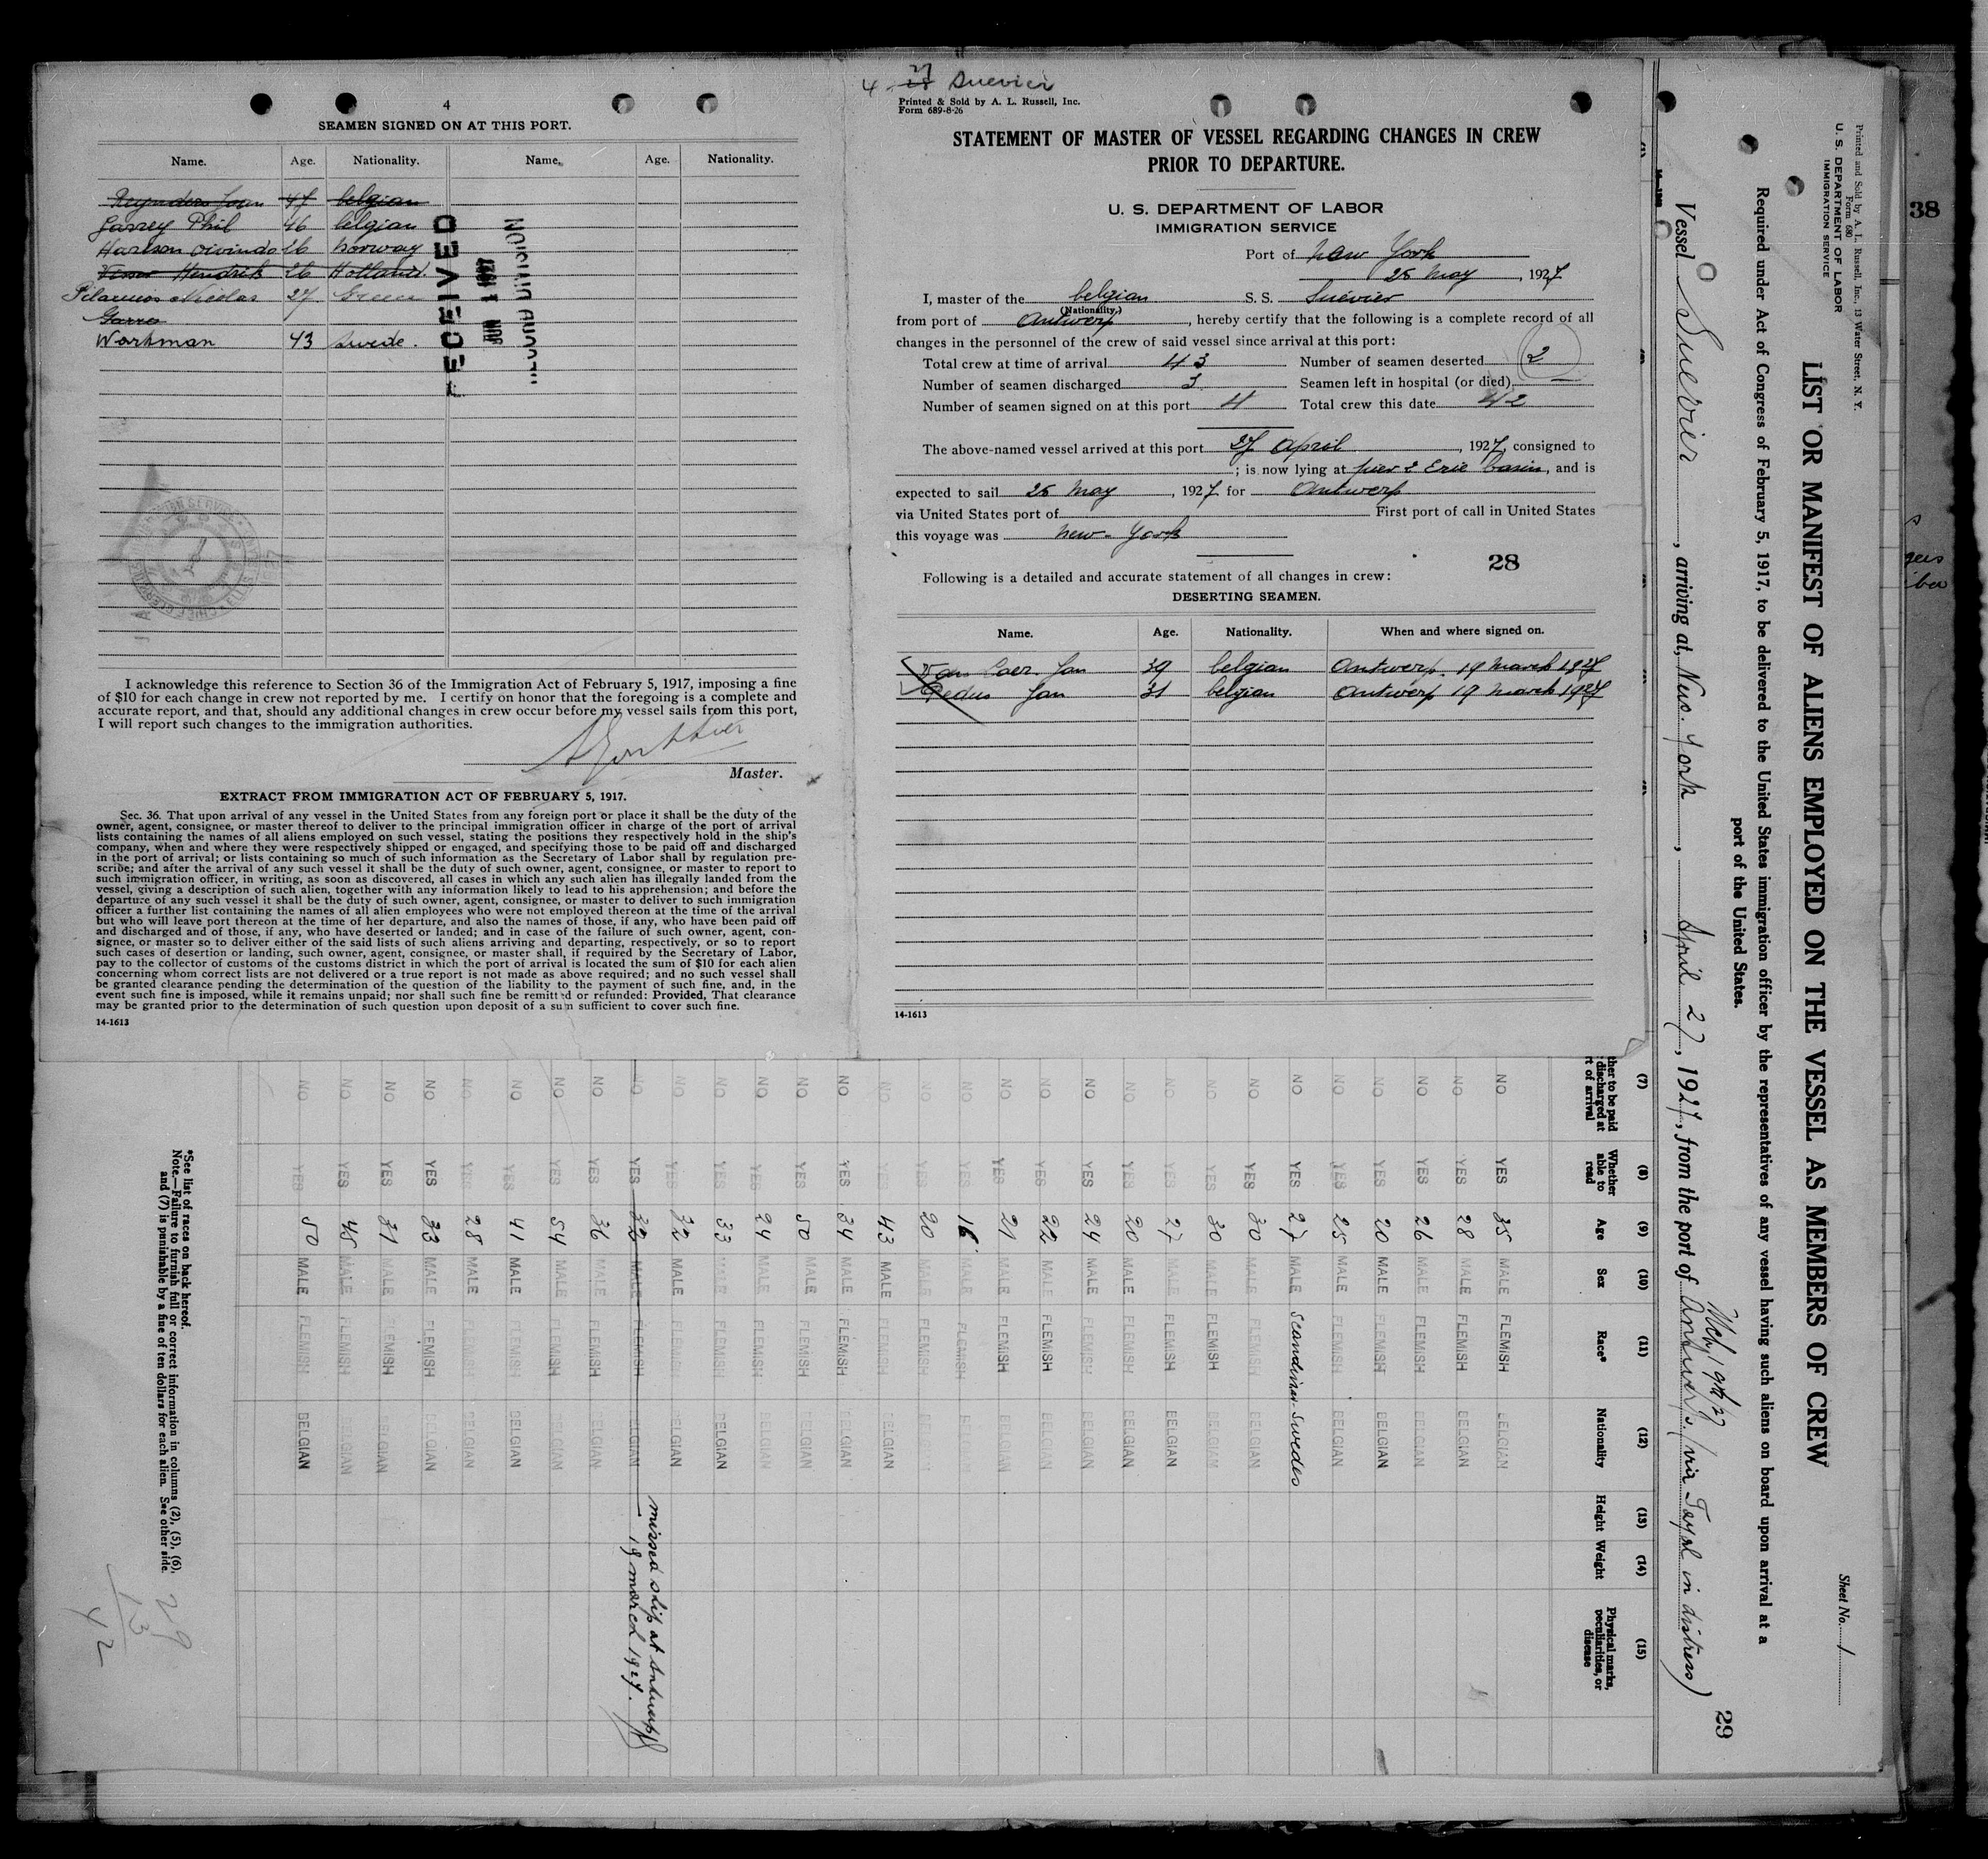 4
SEAMEN SIGNED ON AT THIS PORT.
Name. Age. Nationality. Name. Age. Nationality.
Reynders Joan 47 belgian
Garrey Phil 46 belgian
Harlson oivindo 26 norway
Visser Hendrik 26 Holland.
Nicolas 27
Garro
Workman 43 swede.
RECEIVED
JUN 1 1927
DIVISION
I acknowledge this reference to Section 36 of the Immigration Act of February 5, 1917, imposing a fine
of $10 for each change in crew not reported by me. I certify on honor that the foregoing is a complete and
accurate report, and that, should any additional changes in crew occur before my vessel sails from this port,
I will report such changes to the immigration authorities.
Master.
EXTRACT FROM IMMIGRATION ACT OF FEBRUARY 5, 1917.
Sec. 36. That upon arrival of any vessel in the United States from any foreign port or place it shall be the duty of the
owner, agent, consignee, or master thereof to deliver to the principal immigration officer in charge of the port of arrival
lists containing the names of all aliens employed on such vessel, stating the positions they respectively hold in the ship's
company, when and where they were respectively shipped or engaged, and specifying those to be paid off and discharged
in the port of arrival; or lists containing so much of such information as the Secretary of Labor shall by regulation pre-
scribe; and after the arrival of any such vessel it shall be the duty of such owner, agent, consignee, or master to report to
such immigration officer, in writing, as soon as discovered, all cases in which any such alien has illegally landed from the
vessel, giving a description of such alien, together with any information likely to lead to his apprehension; and before the
departure of any such vessel it shall be the duty of such owner, agent, consignee, or master to deliver to such immigration
officer a further list containing the names of all alien employees who were not employed thereon at the time of the arrival
but who will leave port thereon at the time of her departure, and also the names of those, if any, who have been paid off
and discharged and of those, if any, who have deserted or landed; and in case of the failure of such owner, agent, con-
signee, or master so to deliver either of the said lists of such aliens arriving and departing, respectively, or so to report
such cases of desertion or landing, such owner, agent, consignee, or master shall, if required by the Secretary of Labor,
pay to the collector of customs of the customs district in which the port of arrival is located the sum of $10 for each alien
concerning whom correct lists are not delivered or a true report is not made as above required; and no such vessel shall
be granted clearance pending the determination of the question of the liability to the payment of such fine, and, in the
event such fine is imposed, while it remains unpaid; nor shall such fine be remitted or refunded: Provided, That clearance
may be granted prior to the determination of such question upon deposit of a sum sufficient to cover such fine.
14-1613
4 27 Suevier
Printed & Sold by A. L. Russell, Inc.
Form 689-8-26
STATEMENT OF MASTER OF VESSEL REGARDING CHANGES IN CREW
PRIOR TO DEPARTURE.
U. S. DEPARTMENT OF LABOR
IMMIGRATION SERVICE
Port of new York
25 may, 1927
I, master of the belgian S. S. Suevier
(Nationality.)
from port of Antwerp, hereby certify that the following is a complete record of all
changes in the personnel of the crew of said vessel since arrival at this port:
Total crew at time of arrival 43 Number of seamen deserted 2
Number of seamen discharged 3 Seamen left in hospital (or died) —
Number of seamen signed on at this port 4 Total crew this date 42
The above-named vessel arrived at this port 27 April, 1927, consigned to
; is now lying at pier 2 Erie basin, and is
expected to sail 25 may, 1927 for Antwerp
via United States port of First port of call in United States
this voyage was new-York
28
Following is a detailed and accurate statement of all changes in crew:
DESERTING SEAMEN.
Name. Age. Nationality. When and where signed on.
Jan 39 belgian Antwerp. 19 march 1927
Jan 31 belgian Antwerp 19 march 1927
14-1613
Printed and Sold by A. L. Russell, Inc., 13 Water Street, N. Y.
Form 680
U. S. DEPARTMENT OF LABOR
IMMIGRATION SERVICE
Sheet No. 1
LIST OR MANIFEST OF ALIENS EMPLOYED ON THE VESSEL AS MEMBERS OF CREW
Required under Act of Congress of February 5, 1917, to be delivered to the United States immigration officer by the representatives of any vessel having such aliens on board upon arrival at a
port of the United States.
29
Mch 19th/27
Vessel Suevier, arriving at New-York, April 27, 1927, from the port of Antwerp (via Fayal in distress)
(7) (8) (9) (10) (11) (12) (13) (14) (15)
ther to be paid
discharged at
rt of arrival
Whether
able to
read
Age Sex Race* Nationality Height Weight
Physical marks,
peculiarities, or
disease
NO YES 35 MALE FLEMISH BELGIAN
NO YES 28 MALE FLEMISH BELGIAN
NO YES 26 MALE FLEMISH BELGIAN
NO YES 20 MALE FLEMISH BELGIAN
NO YES 25 MALE FLEMISH BELGIAN
NO YES 27 MALE Scandinav Swedes
NO YES 30 MALE FLEMISH BELGIAN
NO YES 30 MALE FLEMISH BELGIAN
NO YES 27 MALE FLEMISH BELGIAN
NO YES 20 MALE FLEMISH BELGIAN
NO YES 24 MALE FLEMISH BELGIAN
NO YES 22 MALE FLEMISH BELGIAN
NO YES 21 MALE FLEMISH BELGIAN
NO YES 16 MALE FLEMISH BELGIAN
NO YES 20 MALE FLEMISH BELGIAN
NO YES 43 MALE FLEMISH BELGIAN
NO YES 34 MALE FLEMISH BELGIAN
NO YES 50 MALE FLEMISH BELGIAN
NO YES 24 MALE FLEMISH BELGIAN
NO YES 33 MALE FLEMISH BELGIAN
NO YES 32 MALE FLEMISH BELGIAN
missed ship at antwerp
NO YES 32 MALE FLEMISH BELGIAN 19 march 1927.
NO YES 36 MALE FLEMISH BELGIAN
NO YES 54 MALE FLEMISH BELGIAN
NO YES 41 MALE FLEMISH BELGIAN
NO YES 28 MALE FLEMISH BELGIAN
NO YES 33 MALE FLEMISH BELGIAN
NO YES 31 MALE FLEMISH BELGIAN
NO YES 45 MALE FLEMISH BELGIAN
NO YES 50 MALE FLEMISH BELGIAN
*See list of races on back hereof.
Note.—Failure to furnish full or correct information in columns (2), (5), (6),
and (7) is punishable by a fine of ten dollars for each alien. See other side.
29
13
42
38